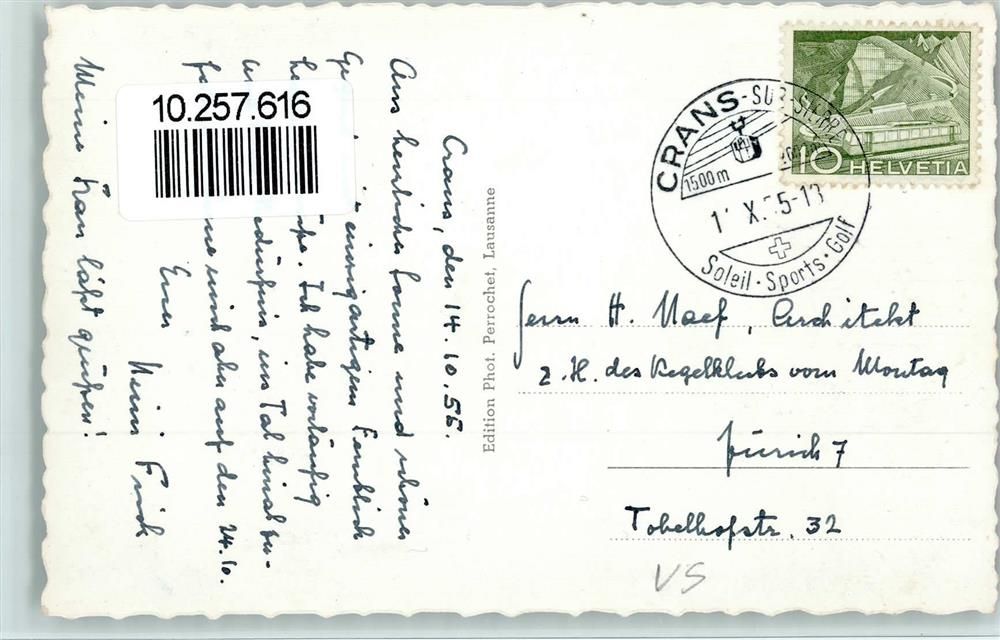 Crans, den 14.10.55.
Aus herrlicher Sonne und schöner
einzigartigem Fernblich
Ich habe vorläufig
ins Tal hinab zu-
mich aber auf den 24.10.
Euer
Heini Frick
Meine Frau läßt grüßen!
10.257.616
Edition Phot. Perrochet, Lausanne
CRANS-SUR-SIERRE
1500 m
X.55-1
Soleil · Sports · Golf
10 HELVETIA
Herrn H. Naef, Architekt
z. H. des Kegelklubs vom Montag
Zürich 7
Tobelhofstr. 32
VS